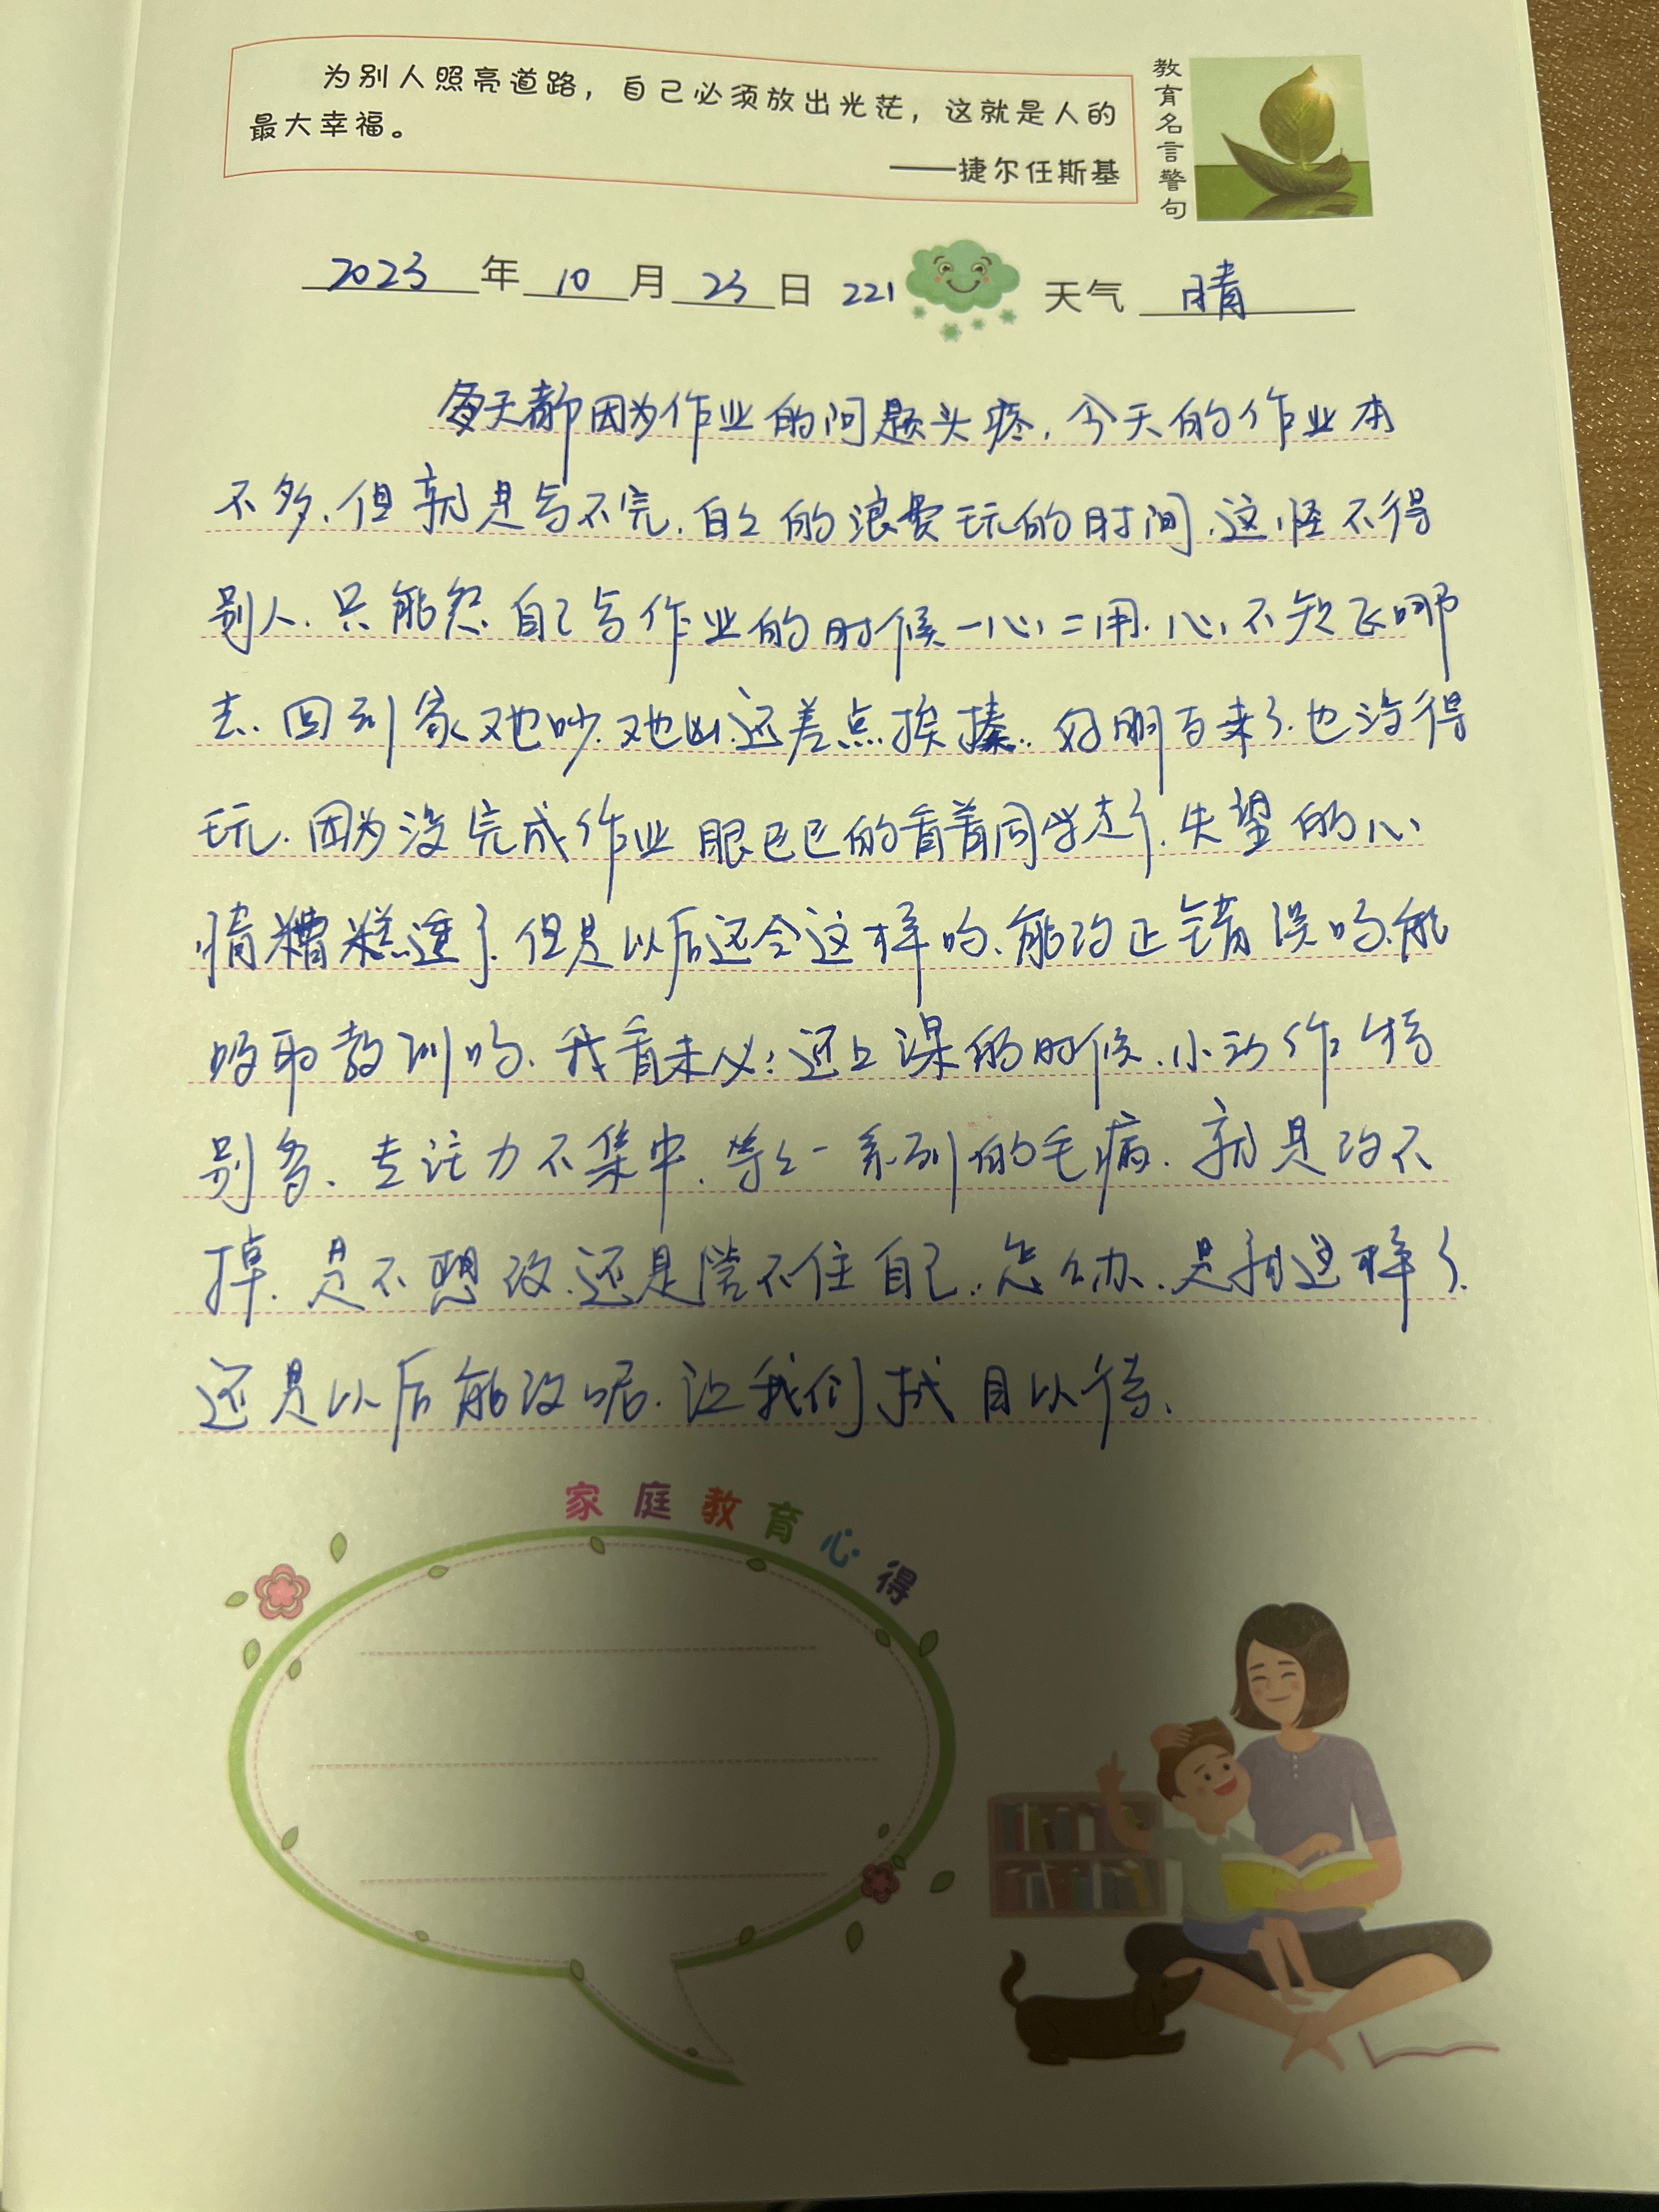 为别人照亮道路，自己必须放出光茫，这就是人的
最大幸福。
——捷尔任斯基
教育名言警句
2023年10月23日 221 天气 晴
每天都因为作业的问题头疼.今天的作业本
不多.但就是写不完.白白的浪费玩的时间.这怪不得
别人.只能怨自己写作业的时候一心二用.心不知飞哪
去.回到家又她吵.又她凶.还差点挨揍..好朋百来了.也没得
玩.因为没完成作业眼巴巴的看着同学走了.失望的心
情糟糕透了.但是以后还会这样吗.能改正错误吗.能
吸取教训吗.我看未必:还上课的时候.小动作特
别多、专注力不集中.等等一系列的毛病.就是改不
掉.是不想改.还是管不住自己.怎么办.是就这样了.
还是以后能改呢.让我们拭目以待.
家庭教育心得